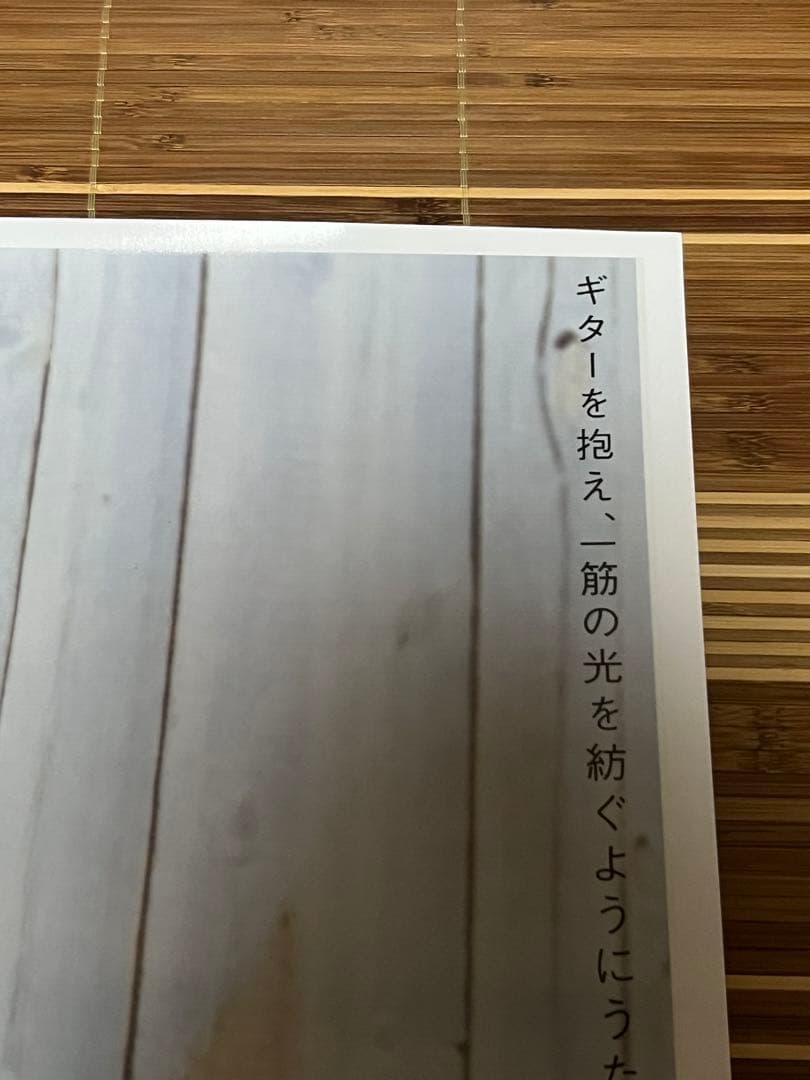 ギターを抱え、一筋の光を紡ぐようにうた